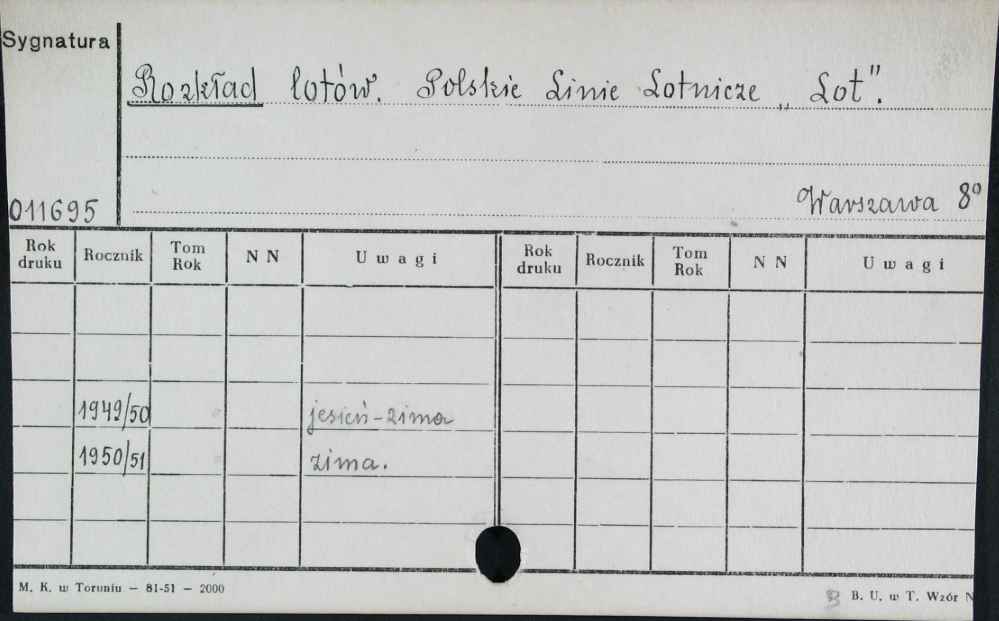 Sygnatura
Rozkład lotów. Polskie Linie Lotnicze „Lot".
Warszawa 8º
011695
Rok druku Rocznik Tom Rok N N Uwagi Rok druku Rocznik Tom Rok N N Uwagi
1949/50 jesień-zima
1950/51 zima.
M. K. w Toruniu — 81-51 — 2000
B. U. w T. Wzór N